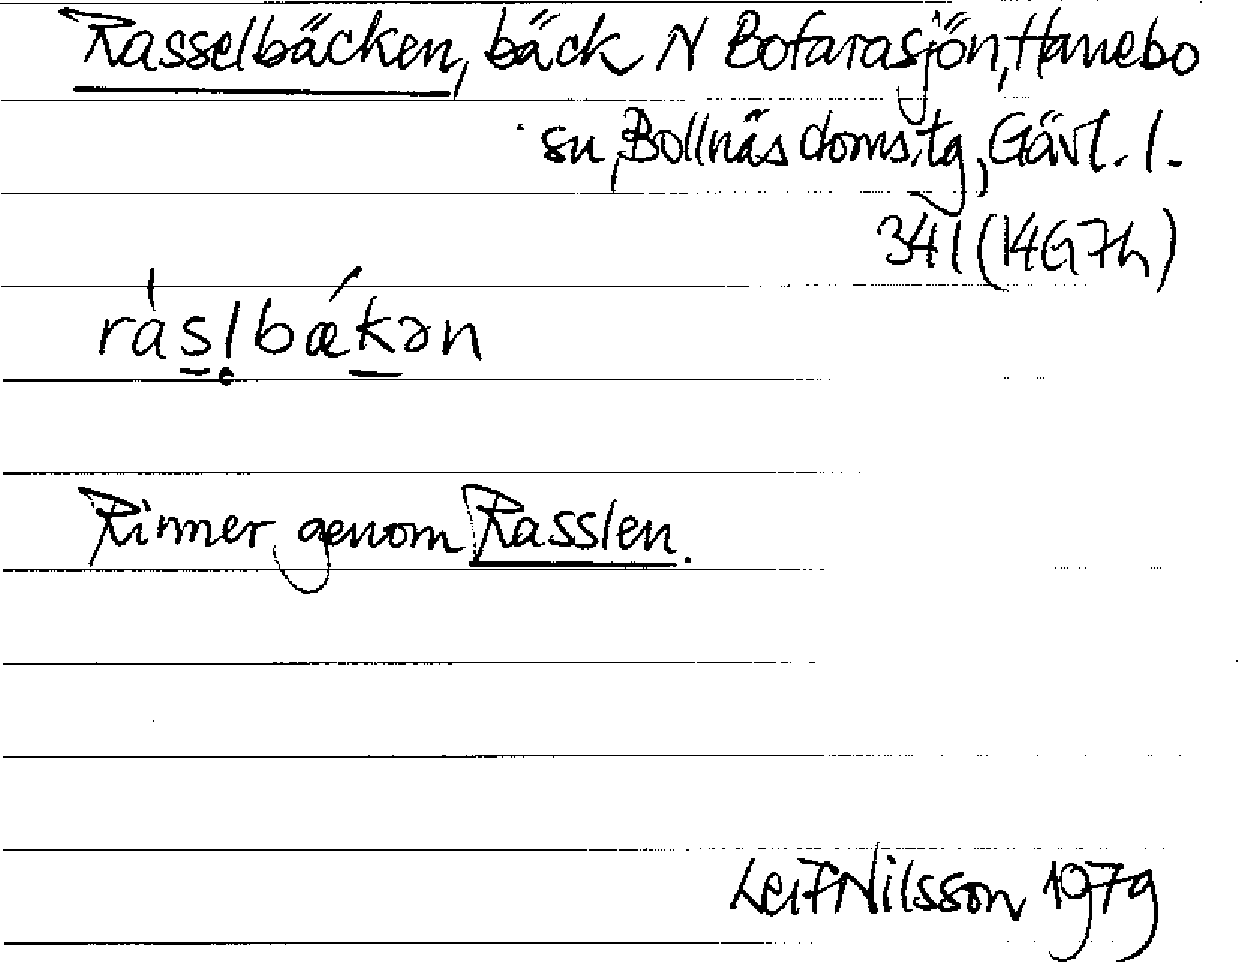 Rasselbäcken, bäck N Bofarasjön, Hanebo
sn, Bollnäs doms.tg, Gävl. l.
341 (14G7h)
rás̲l̥bǽk̲ən
Rinner genom Rasslen.
Leif Nilsson 1979